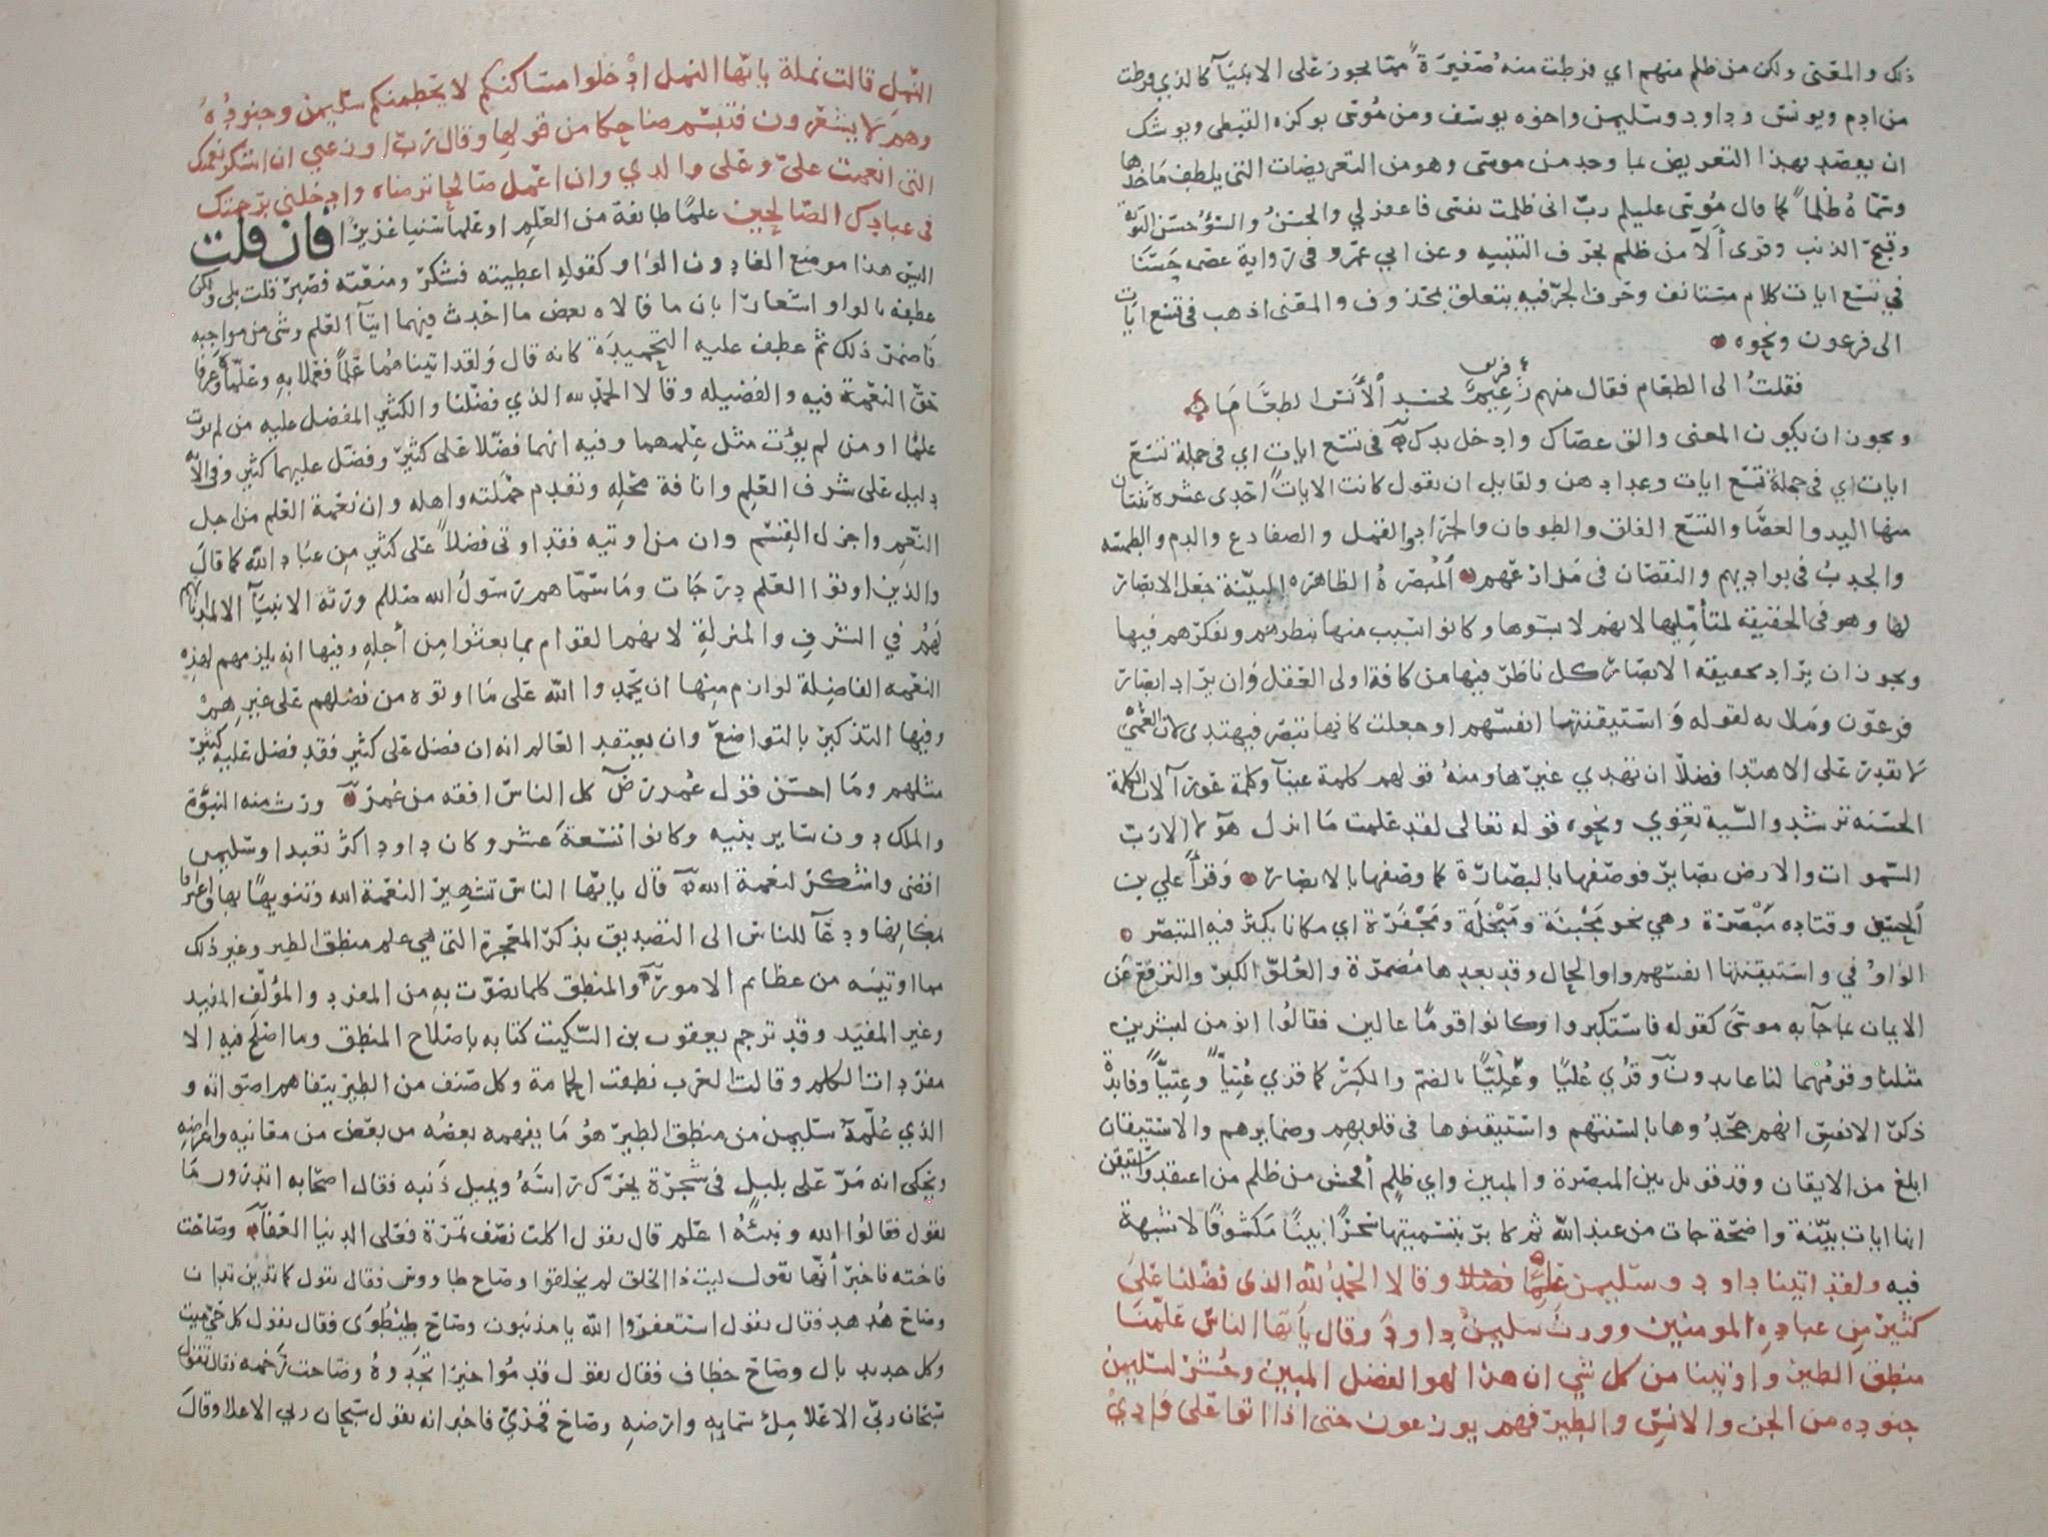 ذلك والمعنى ولكن من ظلم منهم اي فرطت منه صغيرة مما يجوز على الانبيآ كالذي فرطت
من ادم ويونس وداود وسليمن واخوه يوسف ومن موسى بوكزه القبطي ويوشك
ان يقصد بهذا التعريض بما وجد من موسى وهو من التعريضات التي يلطف ماخذها
وسماه ظلما كما قال موسى عليلم رب اني ظلمت نفسي فاغفر لي والحسن والسوء حسن التوبة
وقبح الذنب وقرى ألا من ظلم بحرف التنبيه وعن ابي عمرو في رواية عصمه حسنا
في تسع ايات كلام مستانف وحرف الجر فيه يتعلق بمحذوف والمعنى اذهب في تسع ايات
الى فرعون ونحوه
فقلت الى الطعام فقال منهم فريق زعيم نحسد الأنس الطعاما
ويجوز ان يكون المعنى والق عصاك وادخل يدك في تسع ايات اي في جملة تسع
ايات اي في جملة تسع ايات وعدادهن ولقايل ان يقول كانت الايات احدى عشرة ثنتان
منها اليد والعصا والتسع الفلق والطوفان والجراد والقمل والضفادع والدم والطمسه
والجدب في بواديهم والنقصان في مزارعهم المبصرة الظاهره المبينة جعل الابصار
لها وهو في الحقيقة لمتأمليها لانهم لابسوها وكانوا بسبب منها بنظرهم وتفكرهم فيها
ويجوز ان يراد بحقيقة الابصار كل ناظر فيها من كافة اولى العقل وان يراد ابصار
فرعون وملايه لقوله واستيقنتها انفسهم او جعلت كانها تبصر فيهتدى لان العمي
لا يقدر على الاهتدا فضلا ان تهدي غيرها ومنه قولهم كلمة عينآ وكلمة عورآ لان الكلمة
الحسنه ترشد والسية تغوي ونحوه قوله تعالى لقد علمت ما انزل هولا الا رب
السموات والارض بصاير فوصفها بالبصارة كما وصفها بالابصار وقرأ علي بن
الحسين وقتاده مبصرة وهي نحو مجبنة ومبخلة ومجفرة اي مكانا يكثر فيه التبصر
الواو في واستيقنتها انفسهم واو الحال وقد بعدها مضمرة والعلو الكبر والترفع عن
الايمان بما جآ به موسى كقوله فاستكبروا وكانوا قوما عالين فقالوا انومن لبشرين
مثلنا وقومهما لنا عابدون وقرى عليا وعليا بالضم والكسر كما قرى عتيا وعتيا وفايدة
ذكر الانفس انهم جحدوها بالسنتهم واستيقنوها في قلوبهم وضمايرهم والاستيقان
ابلغ من الايقان وقد قوبل بين المبصرة والمبين واي ظلم أفحش من ظلم من اعتقد واستيقن
انها ايات بينة واضحة جات من عند الله ثم كابر بتسميتها سحرا بينا مكشوفا لا شبهة
فيه ولقد اتينا داود وسليمن علما وقالا الحمد لله الذى فضلنا على
كثير من عباده المومنين وورث سليمن داود وقال يآيها الناس علمنا
منطق الطير واوتينا من كل شي ان هذا لهو الفضل المبين وحشر لسليمن
جنوده من الجن والانس والطير فهم يوزعون حتى اذا اتوا على وادي
النمل قالت نملة يايها النمل ادخلوا مساكنكم لا يحطمنكم سليمن وجنوده
وهم لا يشعرون فتبسم ضاحكا من قولها وقال رب اوزعني ان اشكر نعمتك
التى انعمت علي وعلى والدي وان اعمل صالحا ترضاه وادخلني برحمتك
في عبادك الصالحين علما طايفة من العلم او علما سنيا غزيرا فان قلت
اليس هذا موضع الفا دون الواو كقولك اعطيته فشكر ومنعته فصبر قلت بلى ولكن
عطفه بالواو اشعارا بان ما قالاه بعض ما احدث فيهما ايتآ العلم وشى من مواجبه
فاضمر ذلك ثم عطف عليه التحميدة كانه قال ولقد اتيناهما علما فعملا به وعلماه وعرفا
حق النعمة فيه والفضيله وقالا الحمد لله الذي فضلنا والكثير المفضل عليه من لم يوت
علما او من لم يؤت مثل علمهما وفيه انهما فضلا على كثير وفضل عليهما كثير وفي الآية
دليل على شرف العلم وانافة محله وتقدم حملته واهله وان نعمة العلم من اجل
النعم واجزل القسم وان من اوتيه فقد اوتى فضلا على كثير من عباد الله كما قال
والذين اوتوا العلم درجات وما سماهم رسول الله صللم ورثه الانبيآ الا لمداناتهم
لهم في الشرف والمنزلة لانهم القوام بما بعثوا من أجله وفيها انه يلزمهم لهذه
النعمه الفاضلة لوازم منها ان يحمدوا الله على ما اوتوه من فضلهم على غيرهم
وفيها التذكير بالتواضع وان يعتقد العالم انه ان فضل على كثير فقد فضل عليه كثير
مثلهم وما احسن قول عمر رض كل الناس افقه من عمر ورث منه النبوة
والملك دون ساير بنيه وكانوا تسعة عشر وكان داود اكثر تعبدا وسليمن
اقضى واشكر لنعمة الله قال يايها الناس تشهير النعمة الله وتنويها بها واعترافا
بمكانها ودعآ للناس الى التصديق بذكر المعجزة التى هي علم منطق الطير وغير ذلك
مما اوتيه من عظايم الامور والمنطق كلما يصوت به من المفرد والمؤلف المفيد
وغير المفيد وقد ترجم يعقوب بن السكيت كتابه باصلاح المنطق وما اصلح فيه الا
مفردات الكلم وقالت العرب نطقت الحمامة وكل صنف من الطير يتفاهم اصواته و
الذي علمه سليمن من منطق الطير هو ما يفهمه بعضه من بعض من معانيه واغراضه
ويحكى انه مر على بلبل في شجرة يحرك راسه ويميل ذنبه فقال اصحابه اتدرون ما
يقول فقالوا الله ونبيه اعلم قال يقول اكلت نصف تمرة فعلى الدنيا العفآ وصاحت
فاخته فاخبر أنها تقول ليت ذا الخلق لم يخلقوا وصاح طاووس فقال يقول كما تدين تدان
وصاح هدهد فقال يقول استغفروا الله يا مذنبون وصاح طيطوى فقال يقول كل حي ميت
وكل جديد بال وصاح خطاف فقال يقول قدموا خيرا تجدوه وصاحت رخمه فقال تقول
سبحان ربي الاعلا مل سمايه وارضه وصاح قمري فاخبر انه يقول سبحان ربي الاعلا وقال